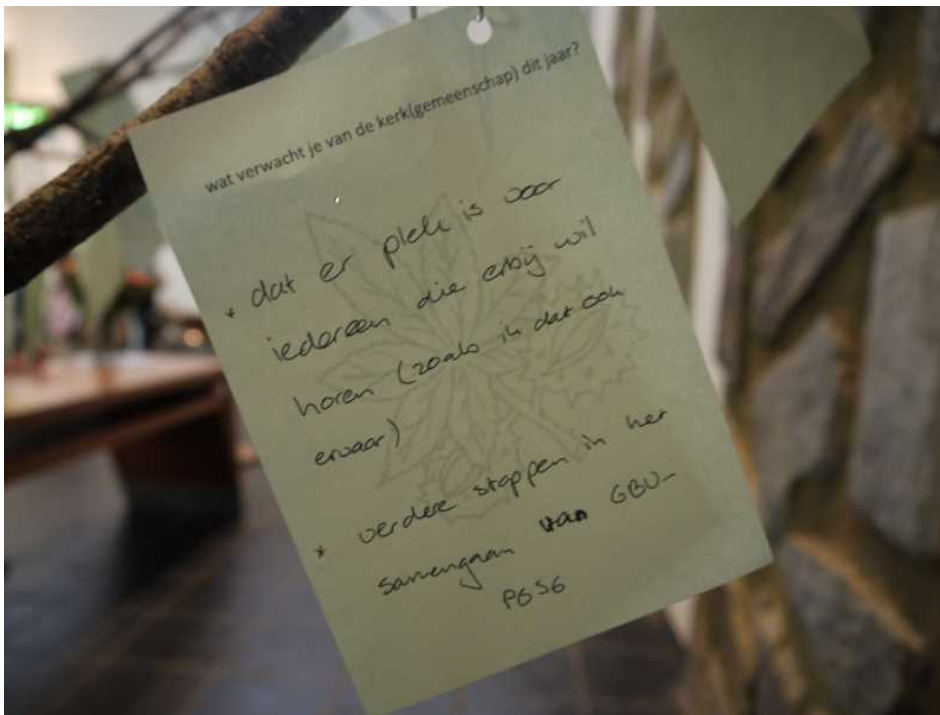 wat verwacht je van de kerk(gemeenschap) dit jaar?
* dat er plek is voor
iedereen die erbij wil
horen (zoals ik dat ook
ervaar)
* verdere stappen in het
samengaan van GBU-
PGSG